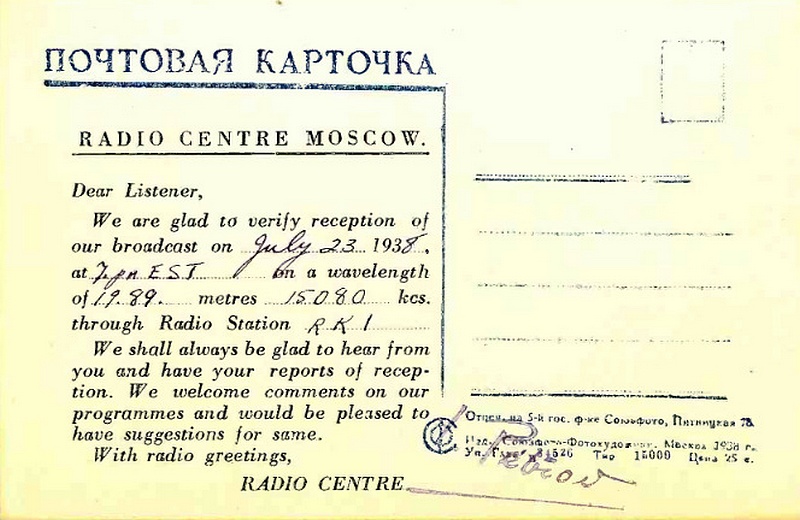 ПОЧТОВАЯ КАРТОЧКА
RADIO CENTRE MOSCOW.
Dear Listener,
We are glad to verify reception of
our broadcast on July 23 1938.
at 7 pm EST on a wavelength
of 19.89. metres 15080 kcs.
through Radio Station RK1
We shall always be glad to hear from
you and have your reports of recep-
tion. We welcome comments on our
programmes and would be pleased to
have suggestions for same.
With radio greetings,
RADIO CENTRE
Отпеч. на 5-й гос. ф-ке Союзфото, Пятницкая 78.
Изд. Союзфото-Фотохудожн. Москва 1938 г.
Тир 15000 Цена 25 к.